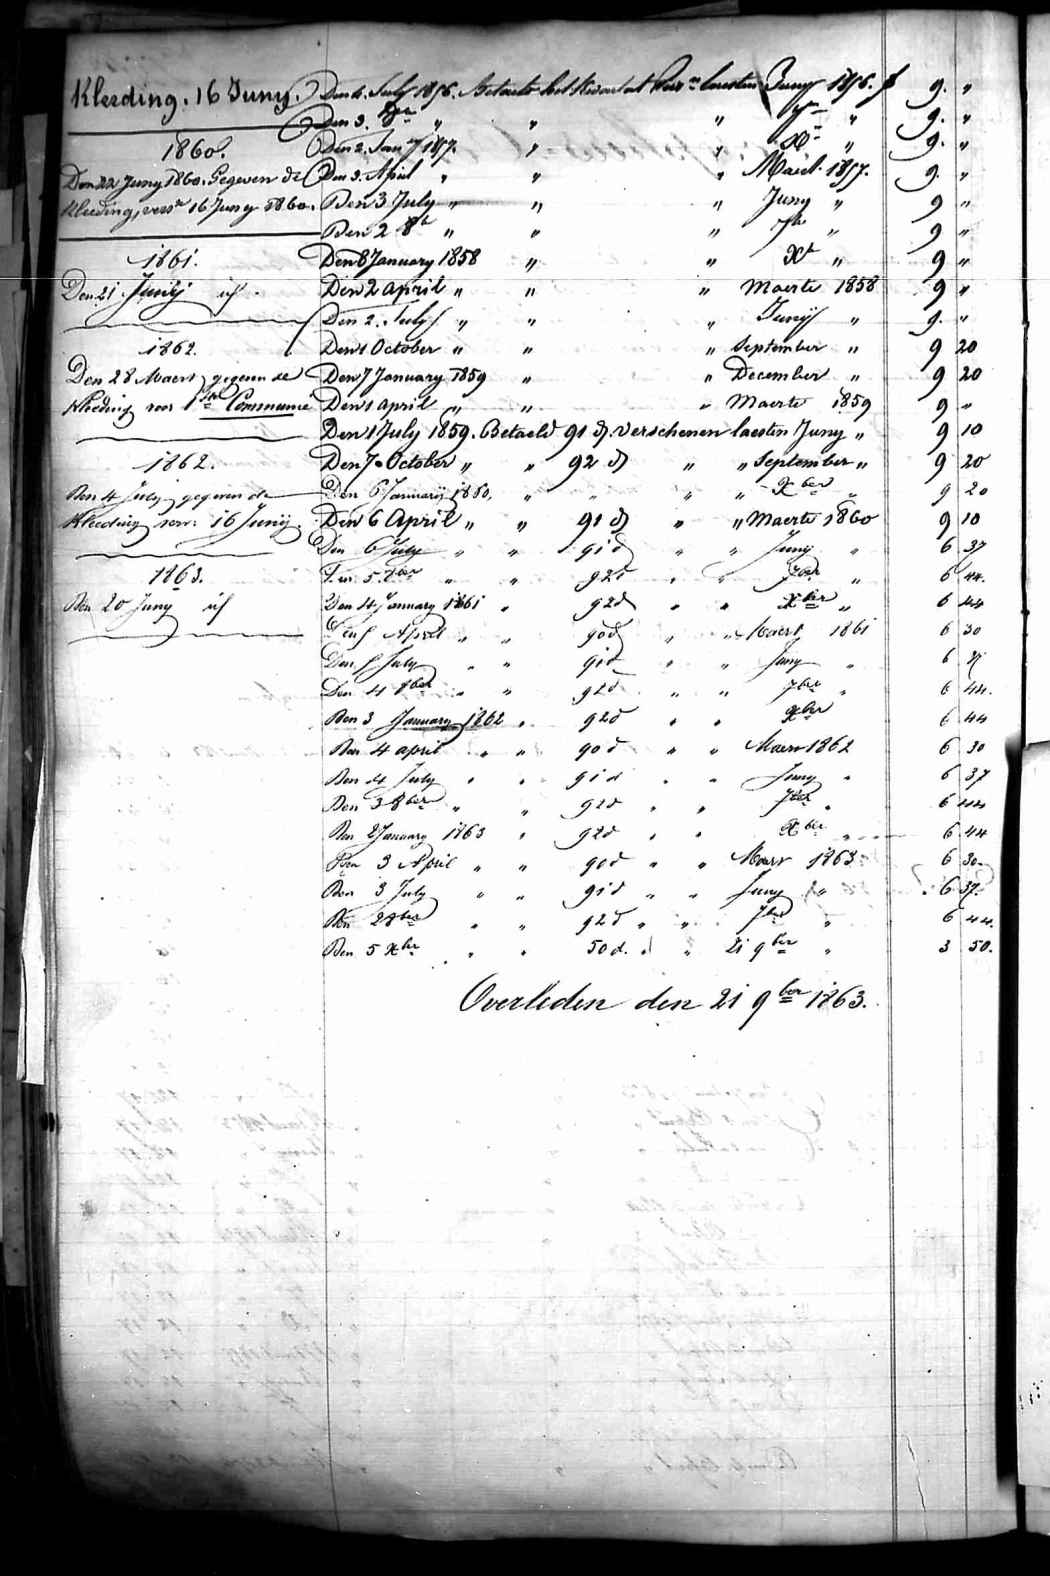 Kleeding. 16 Juny.
1860.
Den 22 Juny 1860. Gegeven de
Kleeding, vers.n 16 Juny 1860.
1861.
Den 21 Junij id.
1862.
Den 28 Maert gegeven de
Kleeding voor 1ste Commune
1862.
Den 4 July gegeven de
Kleeding voor 16 Junij.
1863.
Den 20 Juny id
Den 4. July 1856. Betaelt het Kwartael laesten Juny 1856. f 9. "
Den 3. 8br " " " 7br " 9. "
Den 2. Jan 1857. " " Xr " 9. "
Den 3. April " " " Maert. 1857. 9. "
Den 3 July " " " Juny " 9 "
Den 2 8br " " " 7br " 9 "
Den 8 January 1858 " " Xr " 9 "
Den 2 april " " " Maerte 1858 9 "
Den 2. July " " " Junij " 9. "
Den 1 October " " " September " 9 20
Den 7 January 1859 " " December " 9 20
Den 1 april " " " Maerte 1859 9 "
Den 1 July 1859. Betaeld 91 d. verschenen laesten Juny " 9 10
Den 7 October " " 92 d " " September " 9 20
Den 6 Januarij 1860. " " " " Xber " 9 20
Den 6 April " " 91 d " " Maerte 1860 9 10
Den 6 July " " 91 d " " Juny " 6 37
Den 5. 8ber " " 92 d " " 7ber " 6 44.
Den 4 January 1861 " 92 d " " Xber " 6 44
Den 5 April " " 90 d " " Maert 1861 6 30
Den 5 July " " 91 d " " Juny " 6 37
Den 4 8ber " " 92 d " " 7ber " 6 44.
Den 3 January 1862 " 92 d " " Xber 6 44
Den 4 april " " 90 d " " Maert 1862 6 30
Den 4 July " " 91 d " " Juny " 6 37
Den 3 8ber " " 92 d " " 7ber " 6 44
Den 2 January 1863 " 92 d " " Xber " 6 44
Den 3 April " " 90 d " " Maert 1863 6 30
Den 3 July " " 91 d " " Juny " 6 37.
Den 2 8ber " " 92 d " " 7ber " 6 44.
Den 5 Xber " " 50 d. " " 21 9ber " 3 50.
Overleden den 21 9ber 1863.